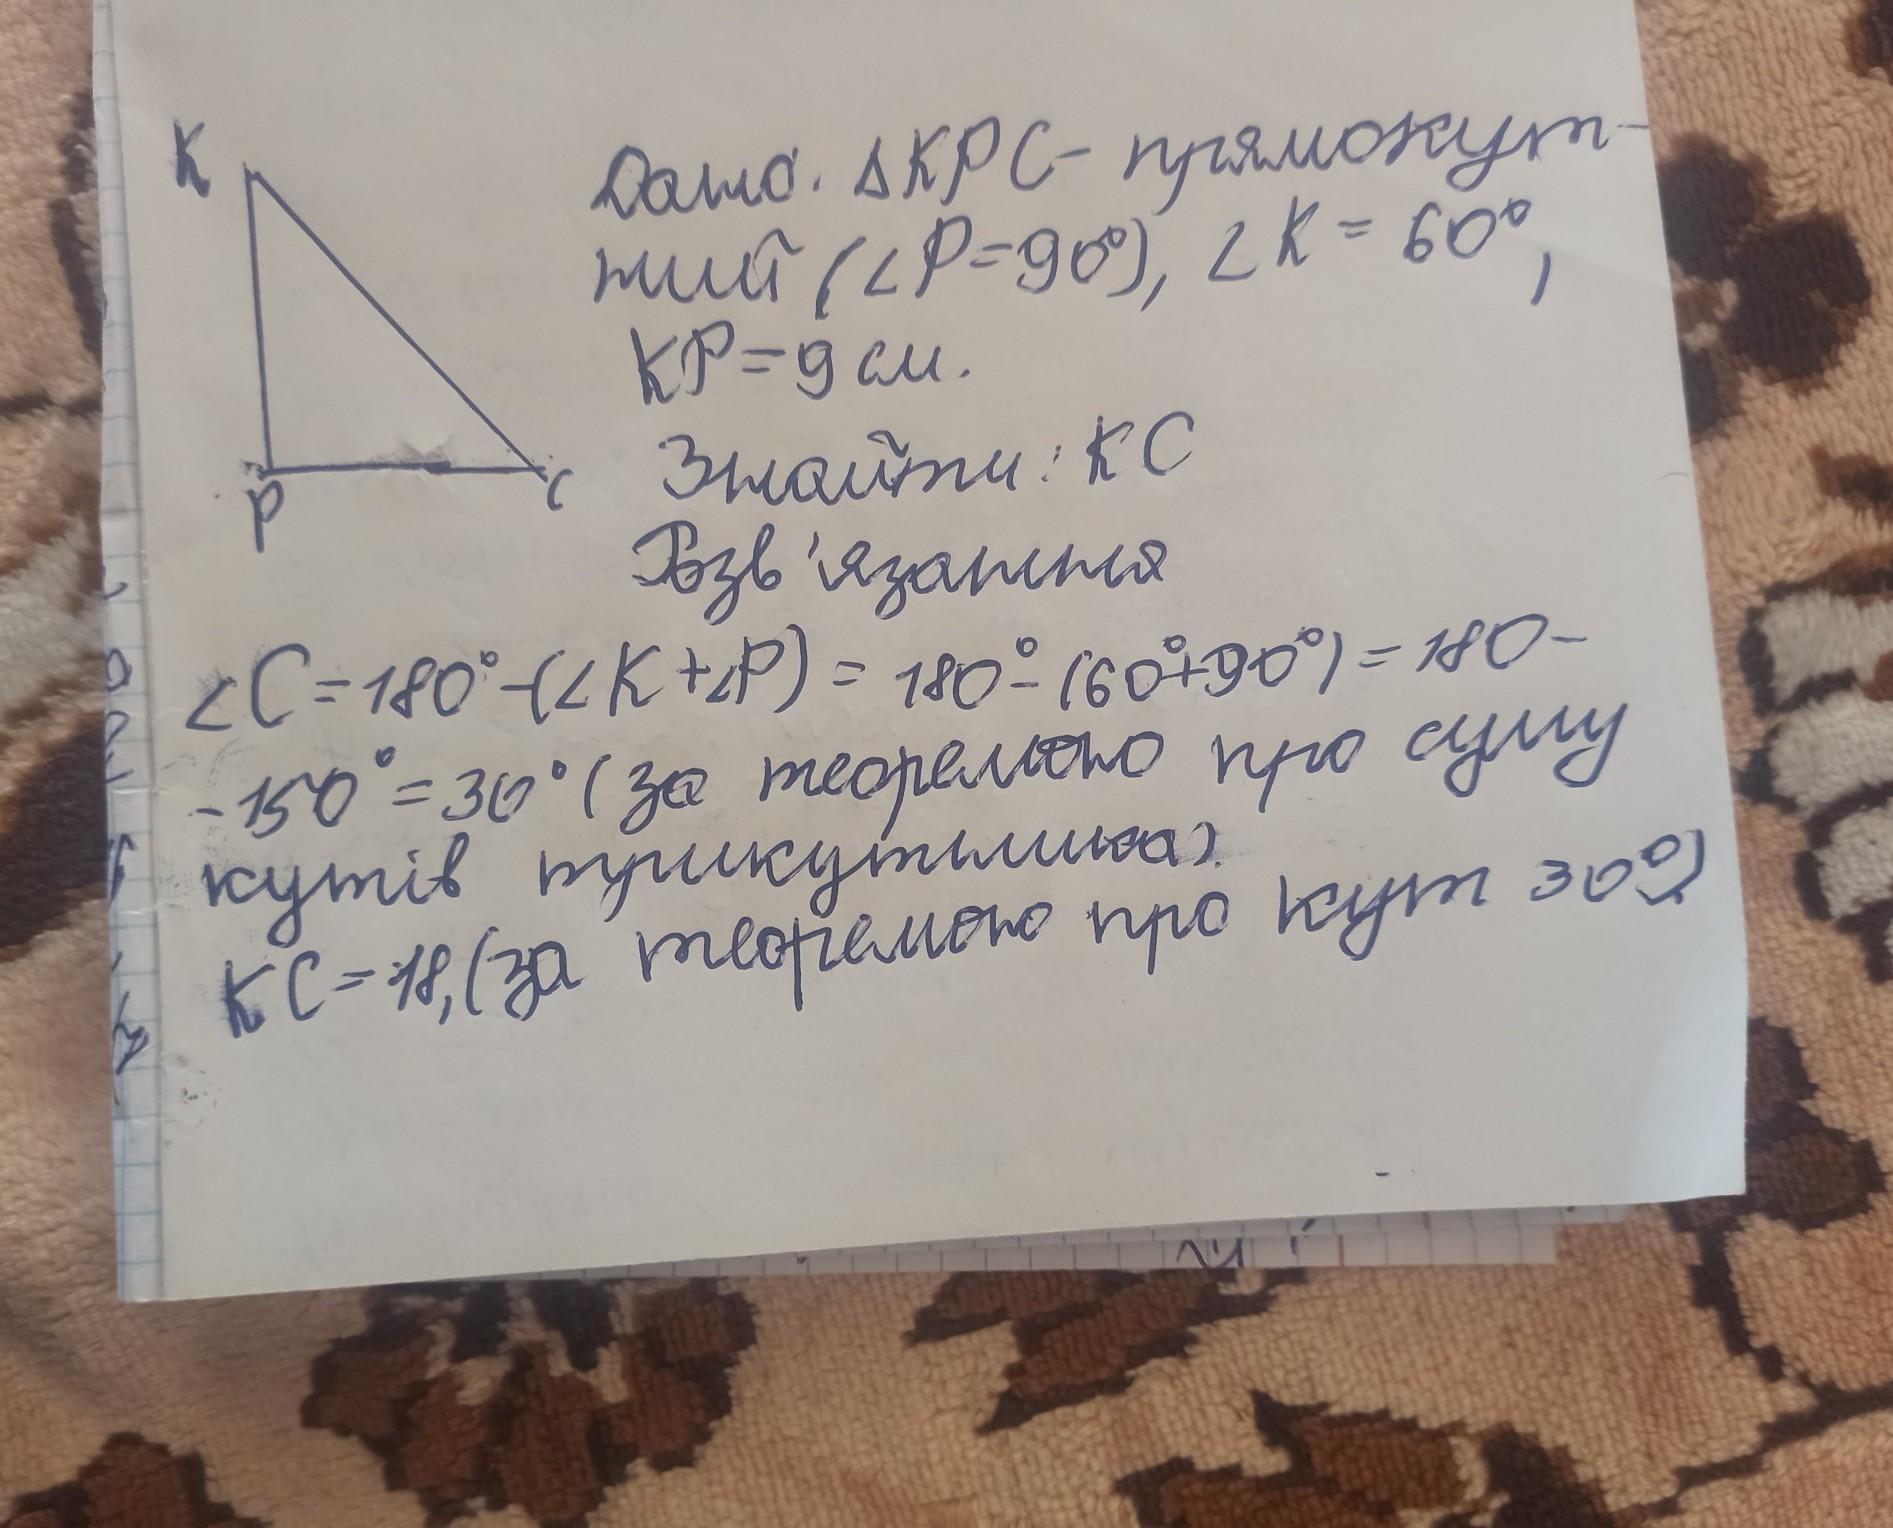 K
P
C
Дано: ΔKPC - прямокут-
ний (∠P=90°), ∠K = 60°,
KP=9 см.
Знайти: KC
Розв'язання
∠C=180°-(∠K+∠P) = 180°-(60°+90°)=180-
-150°=30° (за теоремою про суму
кутів трикутника).
KC=18,(за теоремою про кут 30°)